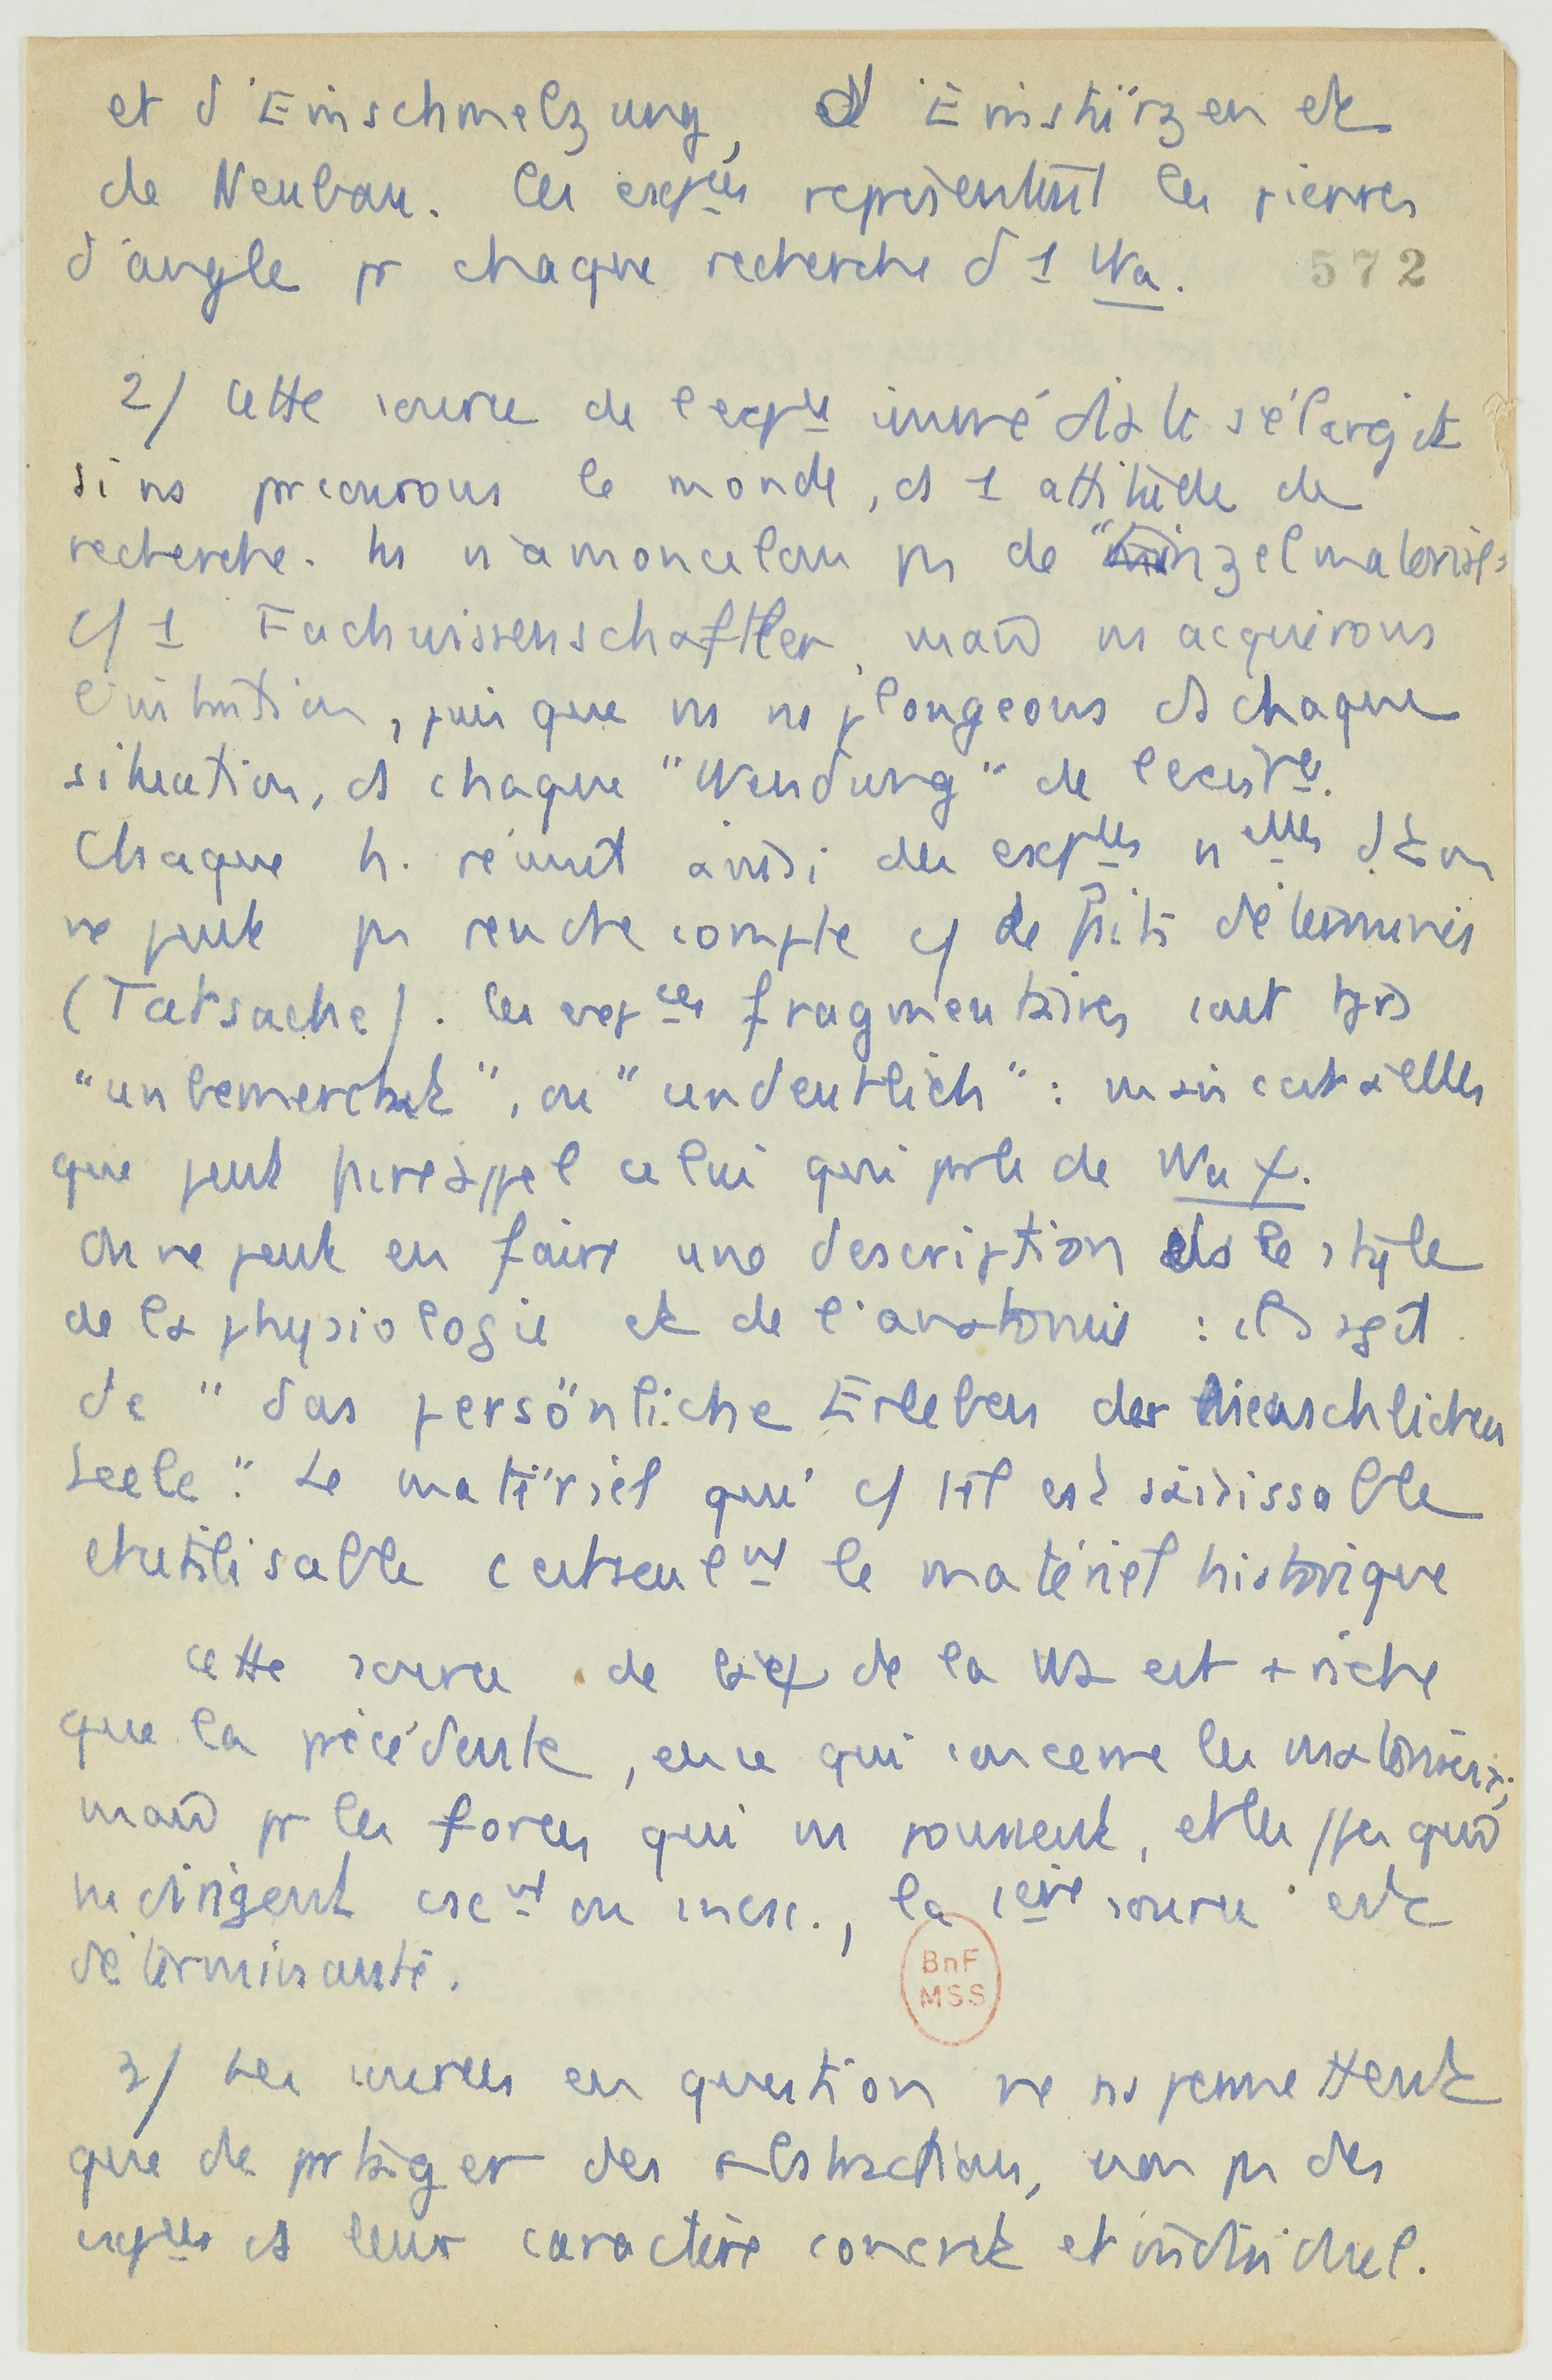 et d'Einschmelzung, d'Einstürzen et
de Neubau. les expces représentent les pierres
d'angle pr chaque recherche d 1 Wa.
572
2/ Cette source de l'expce immédiate s'élargit
si ns parcourons le monde, ds 1 attitude de
recherche. ns n'amoncelons ps de "Einzelmaterial"
c/ 1 Fachwissenschaftler, mais ns acquérons
l'intuition, puisque ns ns plongeons ds chaque
situation, ds chaque "Wendung" de l'existce.
Chaque h. réunit ainsi des expces nelles dt on
ne peut ps rendre compte c/ de faits déterminés
(Tatsache). les expces fragmentaires sont tjrs
"unbemerkt", ou "undeutlich" : mais c'est à elles
que peut faire appel celui qui parle de Wa
On ne peut en faire une description ds le style
de la physiologie et de l'anatomie : il s'agit
de "das persönliche Erleben der menschlichen
Seele". Le matériel qui c/ tel est saisissable
et utilisable c'est seulmt le matériel historique
cette source de la de la Wa est + riche
que la précédente, en ce qui concerne les matériaux;
mais pr les forces qui ns poussent, et les ppes qui
ns dirigent csemt ou incsc., la 1ère source est
déterminante.
BnF
MSS
3/ Les sources en question ne ns permettent
que de partager des abstractions, non ps des
expces ds leur caractère concret et individuel.